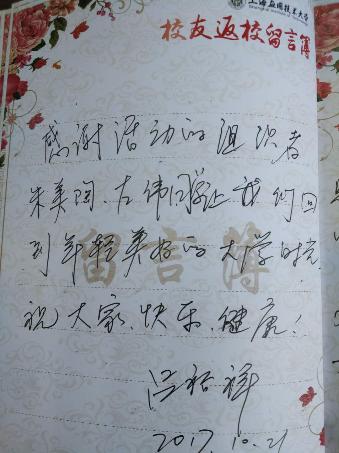 上海应用技术大学
校友返校留言簿
感谢活动的组织者
朱美陶、左伟同学让我们回
到年轻美好的大学时光
留言簿
祝大家、快乐、健康！
吕裕祥
2017.10.21